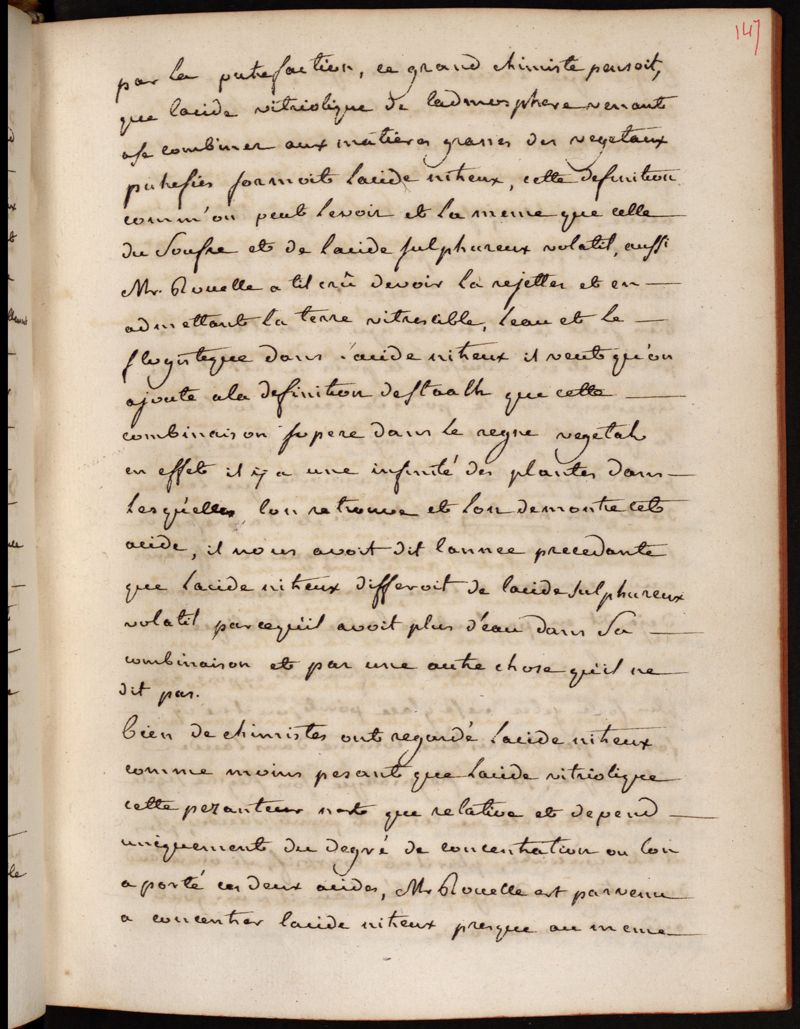 147
par la putrefaction, ce grand chimiste pensoit,
que lacide vitriolique de ladmosphere venant
ase combiner aux matieres grasses des vegetaux
putrefiés formoit lacide nitreux, cette definition
comm'on peut levoir et la meme que celle
du Soufre et de lacide sulphureux volatil, aussi
Mr. Rouelle a til crû devoir la rejetter et en
admettant la terre vitrescible, leau et le
flogistique dans lacide nitreux il veut qu'on
ajoute ala definition destaalh que cette
combinaison sopere dans le regne vegetal
en effet il ÿ a une infinité des plantes dans
lesquelles, lon retrouve et lon demontre cet
acide, il nous avoit dit lannee precedante
que lacide nitreux differoit de lacide sulphureux
volatil parcequ'il avoit plus d'eau dans sa
combinaison et par une autre chose qu'il ne
dit pas.
bien de chimistes ont regardé lacide nitreux
comme moins pesant que lacide vitriolique
cette pezanteur nest que relative et depend
uniquement du degré de concentration ou lon
a porté ces deux acides, Mr Rouelle est parvenu
a concentrer lacide nitreux presque au meme